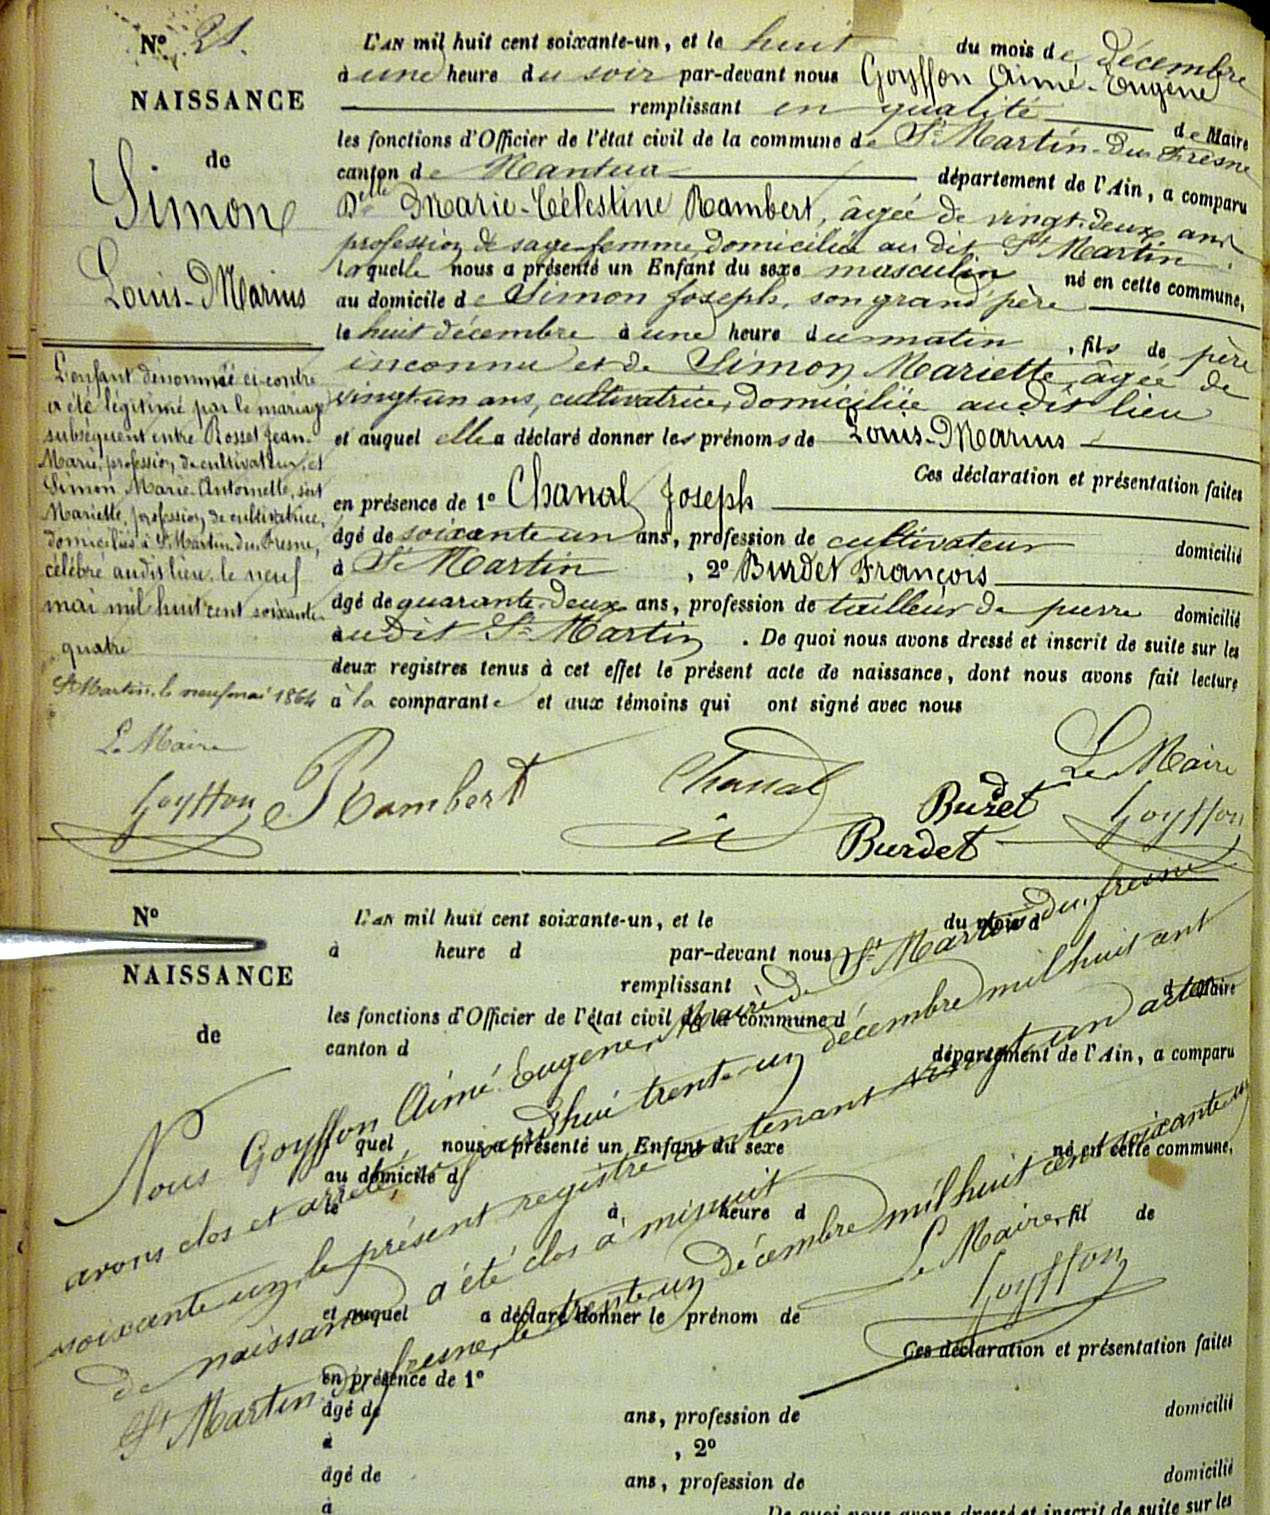 N° 21.
NAISSANCE
de
Simon
Louis-Marius
L'enfant dénommé ci-contre
a été légitimé par le mariage
subséquent entre Rosset Jean-
Marie, profession de cultivateur, et
Simon Marie-Antoinette, dit
Mariette, profession de cultivatrice,
domiciliés à St Martin-du-Fresne,
célébré audit lieu le neuf
mai mil huit cent soixante-
quatre
St Martin, le neuf mai 1864
Le Maire
Goyffon
L'AN mil huit cent soixante-un, et le huit du mois de Décembre
à une heure du soir par-devant nous Goyffon Aimé-Eugène
remplissant en qualité de Maire
les fonctions d'Officier de l'état civil de la commune de St Martin-du-Fresne
canton de Nantua département de l'Ain, a comparu
Delle Marie-Célestine Rambert, âgée de vingt-deux ans,
profession de sage-femme, domiciliée au dit St Martin,
laquelle nous a présenté un Enfant du sexe masculin né en cette commune,
au domicile de Simon Joseph, son grand père
le huit décembre à une heure du matin, fils de père
inconnu et de Simon Mariette, âgée de
vingt un ans, cultivatrice, domiciliée audit lieu
et auquel elle a déclaré donner les prénoms de Louis-Marius
Ces déclaration et présentation faites
en présence de 1° Chanal Joseph
âgé de soixante un ans, profession de cultivateur domicilié
à St Martin, 2° Burdet François
âgé de quarante-deux ans, profession de tailleur de pierre domicilié
audit St Martin. De quoi nous avons dressé et inscrit de suite sur les
deux registres tenus à cet effet le présent acte de naissance, dont nous avons fait lecture
à la comparante et aux témoins qui ont signé avec nous
Le Maire
Rambert Chanal Burdet Goyffon
Burdet
N°
NAISSANCE
de
L'AN mil huit cent soixante-un, et le du mois d
à heure d par-devant nous
remplissant d Maire
les fonctions d'Officier de l'état civil de la commune d
canton d département de l'Ain, a comparu
quel nous a présenté un Enfant du sexe né en cette commune,
au domicile d
le à heure d , fil de
et auquel a déclaré donner le prénom de
Ces déclaration et présentation faites
en présence de 1°
âgé de ans, profession de domicilié
à , 2°
âgé de ans, profession de domicilié
à De quoi nous avons dressé et inscrit de suite sur les
Nous Goyffon Aimé Eugène, Maire de St Martin du fresne
avons clos et arrêté, aujourd'hui trente-un décembre mil huit cent
soixante un, le présent registre contenant vingt un actes
de naissance a été clos à minuit
St Martin du fresne, le trente-un décembre mil huit cent soixante un
Le Maire
Goyffon